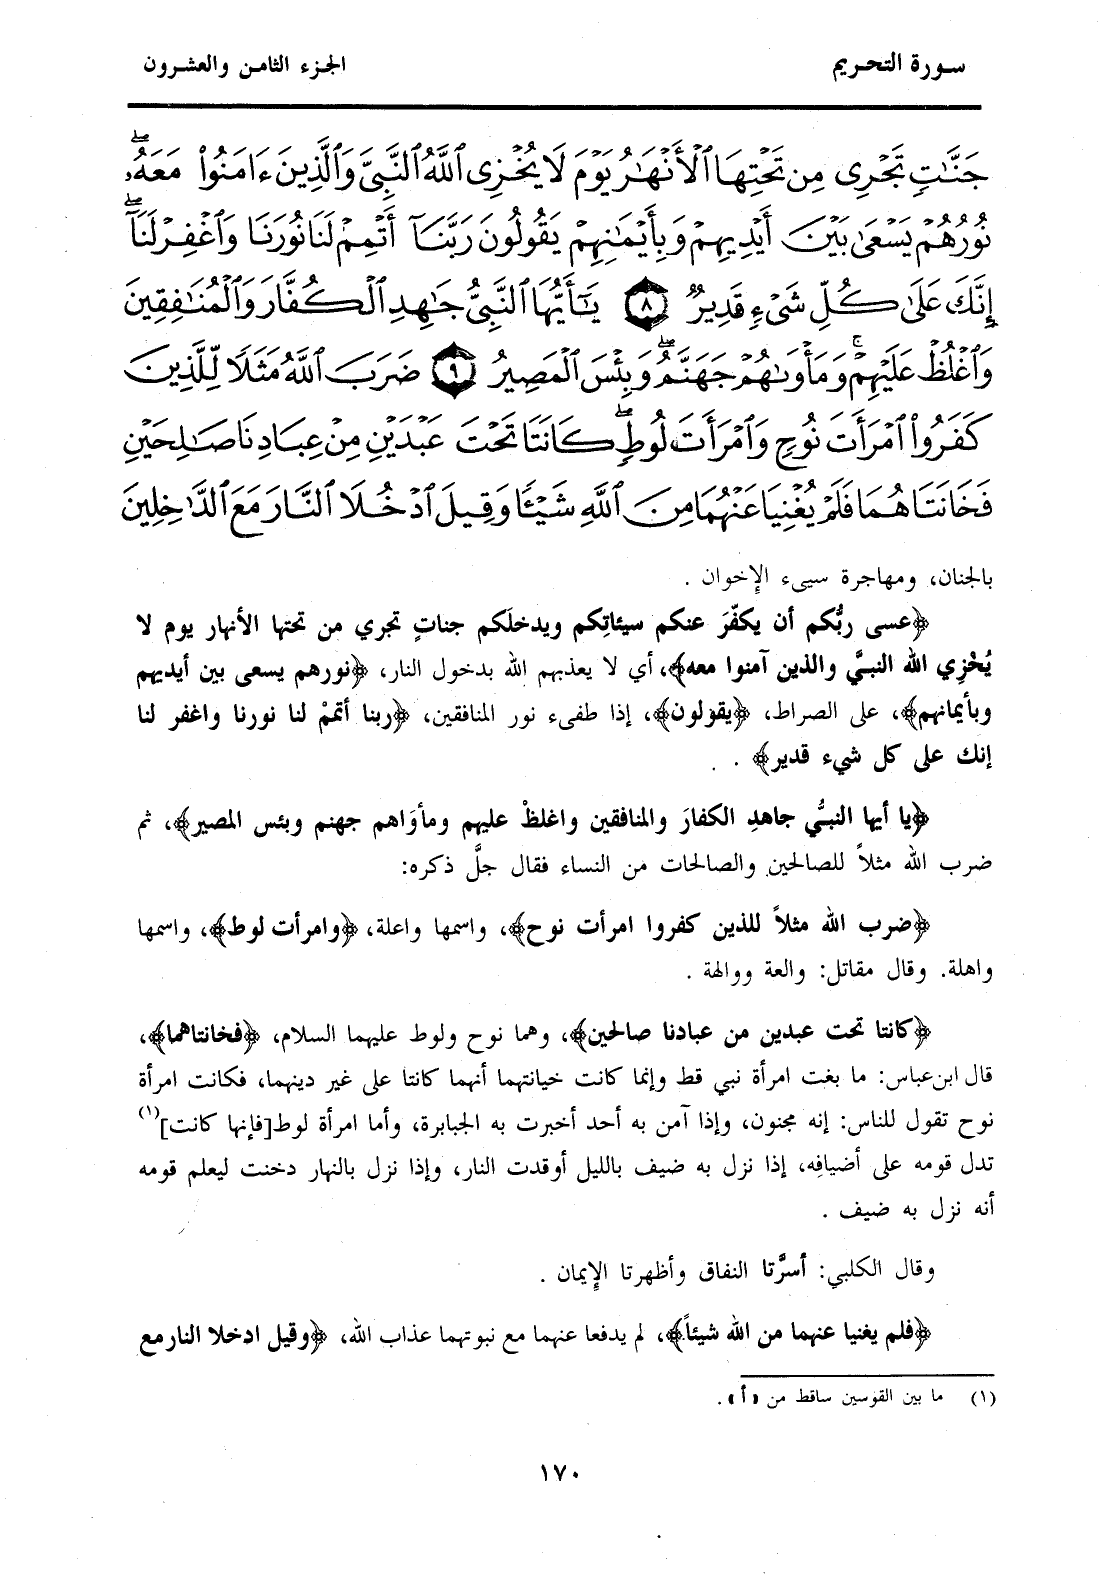 سورة التحريم
الجزء الثامن والعشرون
جَنَّـٰتٍ تَجْرِى مِن تَحْتِهَا ٱلْأَنْهَـٰرُ يَوْمَ لَا يُخْزِى ٱللَّهُ ٱلنَّبِىَّ وَٱلَّذِينَ ءَامَنُوا۟ مَعَهُۥۖ
نُورُهُمْ يَسْعَىٰ بَيْنَ أَيْدِيهِمْ وَبِأَيْمَـٰنِهِمْ يَقُولُونَ رَبَّنَآ أَتْمِمْ لَنَا نُورَنَا وَٱغْفِرْ لَنَآۖ
إِنَّكَ عَلَىٰ كُلِّ شَىْءٍ قَدِيرٌ ٨ يَـٰٓأَيُّهَا ٱلنَّبِىُّ جَـٰهِدِ ٱلْكُفَّارَ وَٱلْمُنَـٰفِقِينَ
وَٱغْلُظْ عَلَيْهِمْۚ وَمَأْوَىٰهُمْ جَهَنَّمُۖ وَبِئْسَ ٱلْمَصِيرُ ٩ ضَرَبَ ٱللَّهُ مَثَلًا لِّلَّذِينَ
كَفَرُوا۟ ٱمْرَأَتَ نُوحٍ وَٱمْرَأَتَ لُوطٍۖ كَانَتَا تَحْتَ عَبْدَيْنِ مِنْ عِبَادِنَا صَـٰلِحَيْنِ
فَخَانَتَاهُمَا فَلَمْ يُغْنِيَا عَنْهُمَا مِنَ ٱللَّهِ شَيْـًٔا وَقِيلَ ٱدْخُلَا ٱلنَّارَ مَعَ ٱلدَّٰخِلِينَ
بالجنان، ومهاجرة سيىء الإخوان .
﴿عسى ربُّكم أن يكفّرَ عنكم سيئاتِكم ويدخلَكم جناتٍ تجري من تحتها الأنهار يوم لا
يُخْزِي الله النبيَّ والذين آمنوا معه﴾، أي لا يعذبهم الله بدخول النار، ﴿نورهم يسعى بين أيديهم
وبأيمانهم﴾، على الصراط، ﴿يقولون﴾، إذا طفىء نور المنافقين، ﴿ربنا أتممْ لنا نورنا واغفر لنا
إنك على كل شيء قدير﴾ .
﴿يا أيها النبيُّ جاهدِ الكفارَ والمنافقين واغلظْ عليهم ومأوَاهم جهنم وبئس المصير﴾، ثم
ضرب الله مثلاً للصالحين والصالحات من النساء فقال جلَّ ذكره:
﴿ضرب الله مثلاً للذين كفروا امرأت نوح﴾، واسمها واعلة، ﴿وامرأت لوط﴾، واسمها
واهلة. وقال مقاتل: والعة ووالهة .
﴿كانتا تحت عبدين من عبادنا صالحين﴾، وهما نوح ولوط عليهما السلام، ﴿فخانتاهما﴾،
قال ابن عباس: ما بغت امرأة نبي قط وإنما كانت خيانتهما أنهما كانتا على غير دينهما، فكانت امرأة
نوح تقول للناس: إنه مجنون، وإذا آمن به أحد أخبرت به الجبابرة، وأما امرأة لوط[فإنها كانت](١)
تدل قومه على أضيافِه، إذا نزل به ضيف بالليل أوقدت النار، وإذا نزل بالنهار دخنت ليعلم قومه
أنه نزل به ضيف .
وقال الكلبي: أسرَّتا النفاق وأظهرتا الإيمان .
﴿فلم يغنيا عنهما من الله شيئاً﴾، لم يدفعا عنهما مع نبوتهما عذاب الله، ﴿وقيل ادخلا النار مع
(١) ما بين القوسين ساقط من «أ».
١٧٠